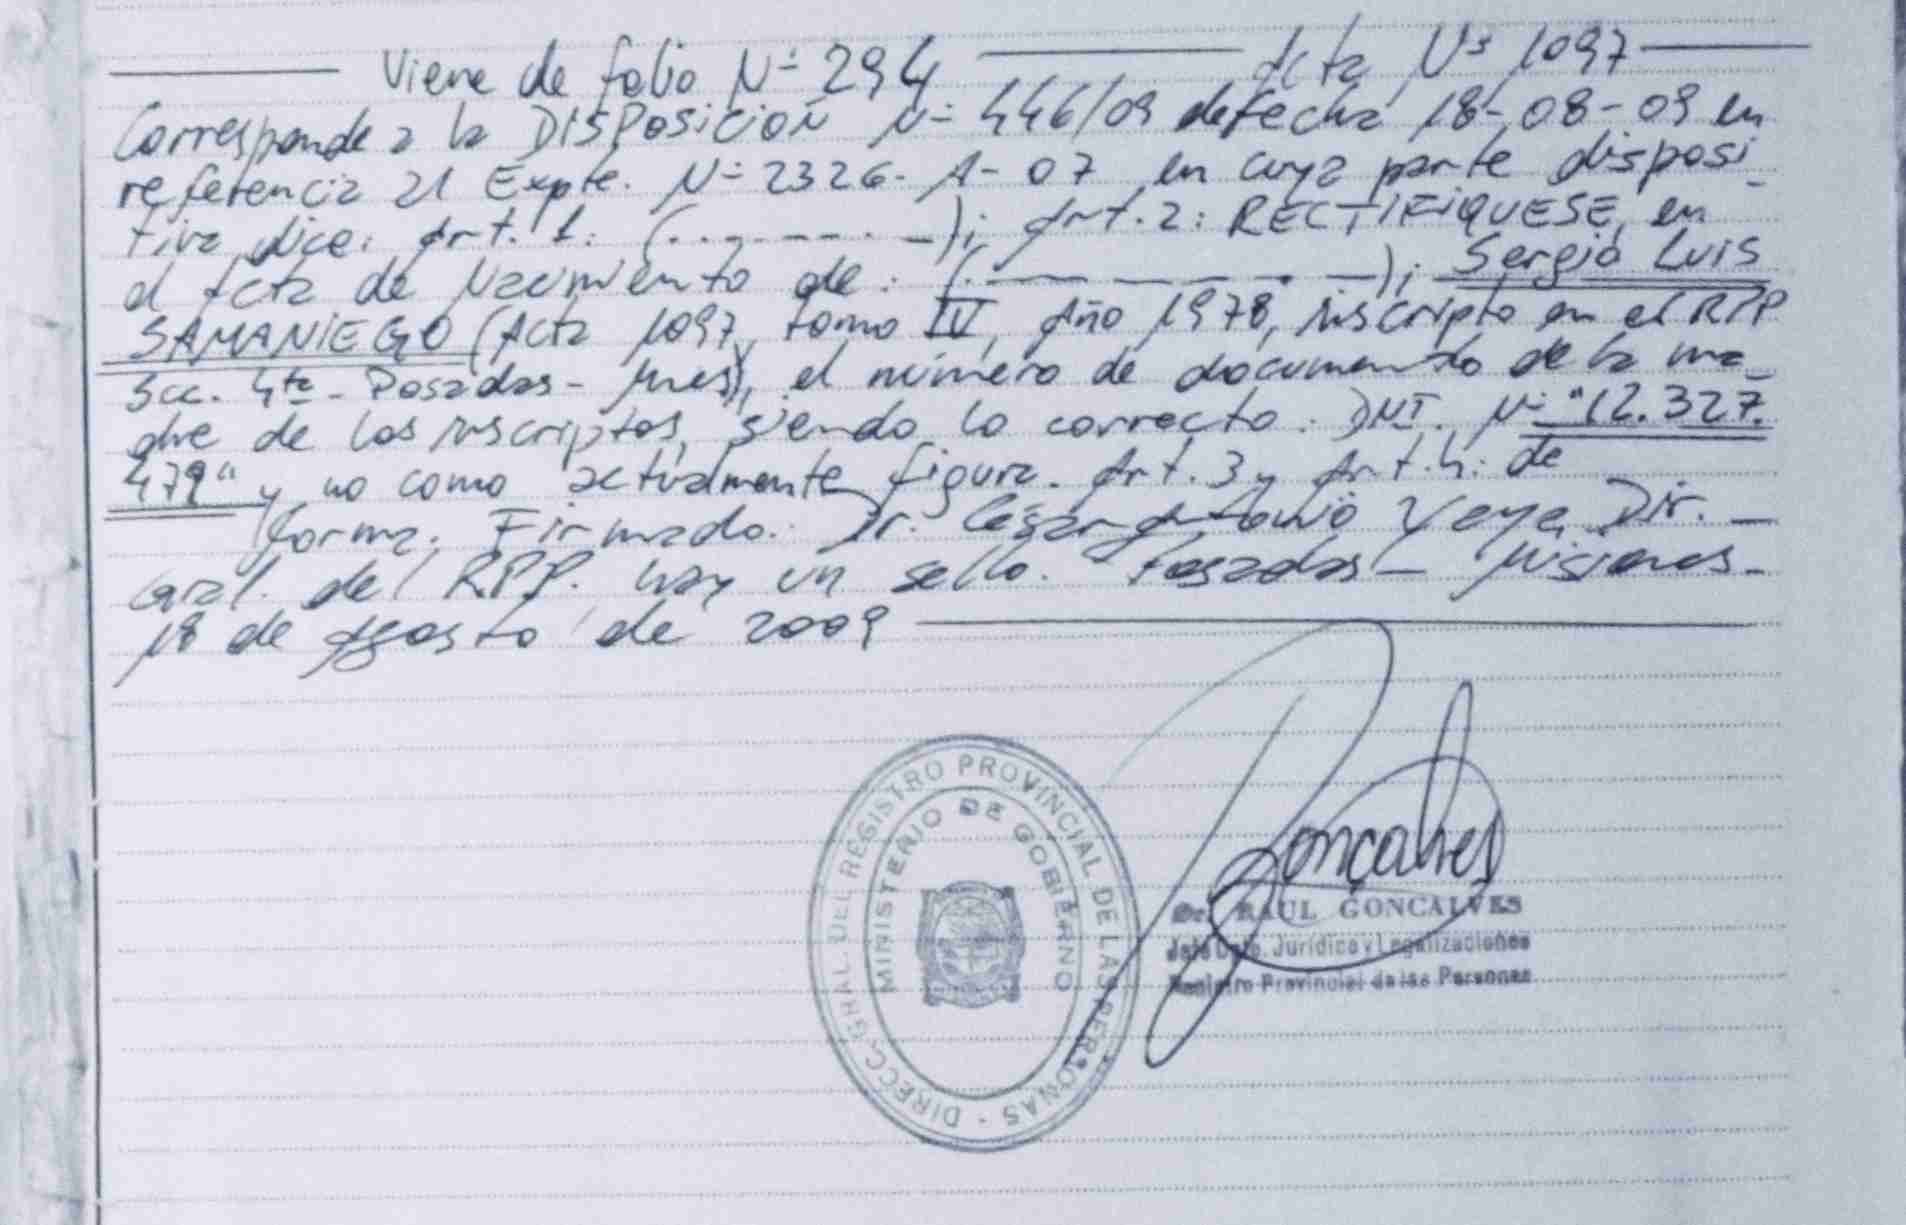 Viene de folio Nº 294 Acta Nº 1097
Corresponde a la DISPOSICIÓN Nº 446/09 de fecha 18-08-09 en
referencia al Expte. Nº 2326-A-07 en cuya parte disposi
tiva dice: Art. 1: (.. - - - - - -); Art. 2: RECTIFIQUESE, en
el Acta de Nacimiento de: (. - - - - - -); Sergio Luis
SAMANIEGO (Acta 1097, tomo IV, Año 1978, inscripto en el RPP
Scc. 4ta - Posadas - Mnes), el número de documento de la ma
dre de los inscriptos, siendo lo correcto: DNI. Nº "12.327.
479" y no como actualmente figura. Art. 3 y Art. 4: de
forma. Firmado: Dr. César Antonio Dir. -
Gral. del RPP. hay un sello. Posadas - Misiones -
18 de Agosto de 2009
DIRECC. GRAL. DEL REGISTRO PROVINCIAL DE LAS PERSONAS -
MINISTERIO DE GOBIERNO
Goncalves
Dr. RAUL GONCALVES
Jefe Dpto. Jurídico y Legalizaciones
Registro Provincial de las Personas